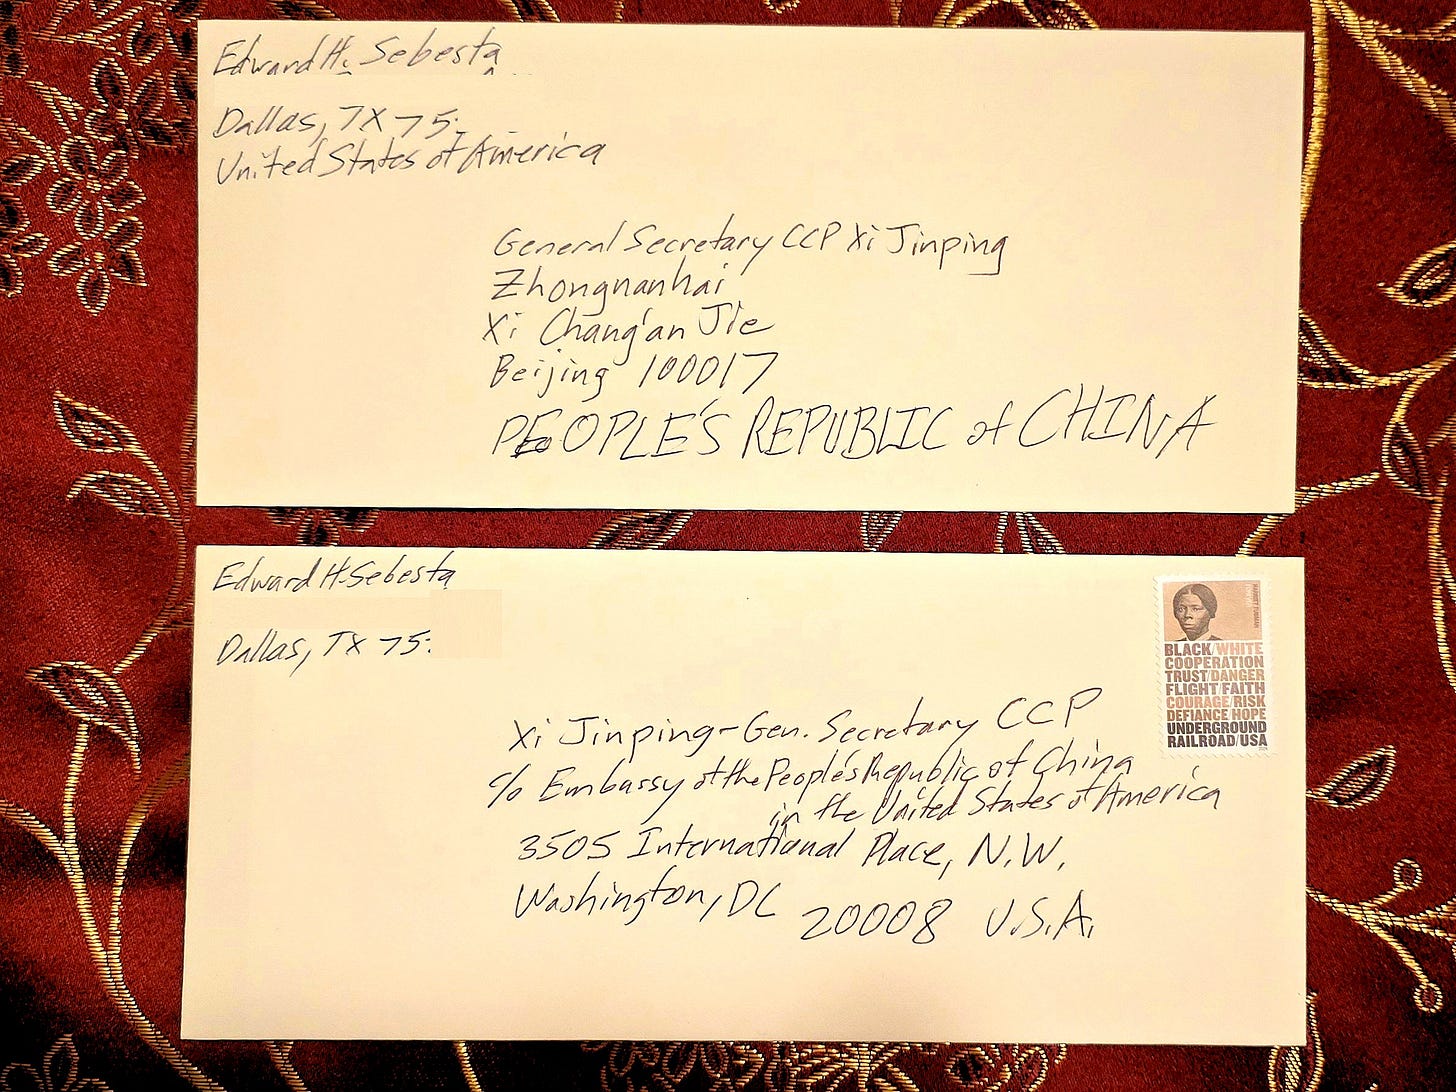 Edward H. Sebesta
Dallas, TX 75
United States of America
General Secretary CCP Xi Jinping
Zhongnanhai
Xi Chang'an Jie
Beijing 100017
PEOPLE'S REPUBLIC of CHINA
Edward H. Sebesta
Dallas, TX 75
HARRIET TUBMAN
BLACK/WHITE
COOPERATION
TRUST/DANGER
FLIGHT/FAITH
COURAGE/RISK
DEFIANCE HOPE
UNDERGROUND
RAILROAD/USA
Xi Jinping - Gen. Secretary CCP
c/o Embassy of the People's Republic of China
in the United States of America
3505 International Place, N.W.
Washington, DC 20008 U.S.A.